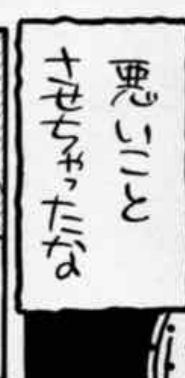 悪いこと
させちゃったな